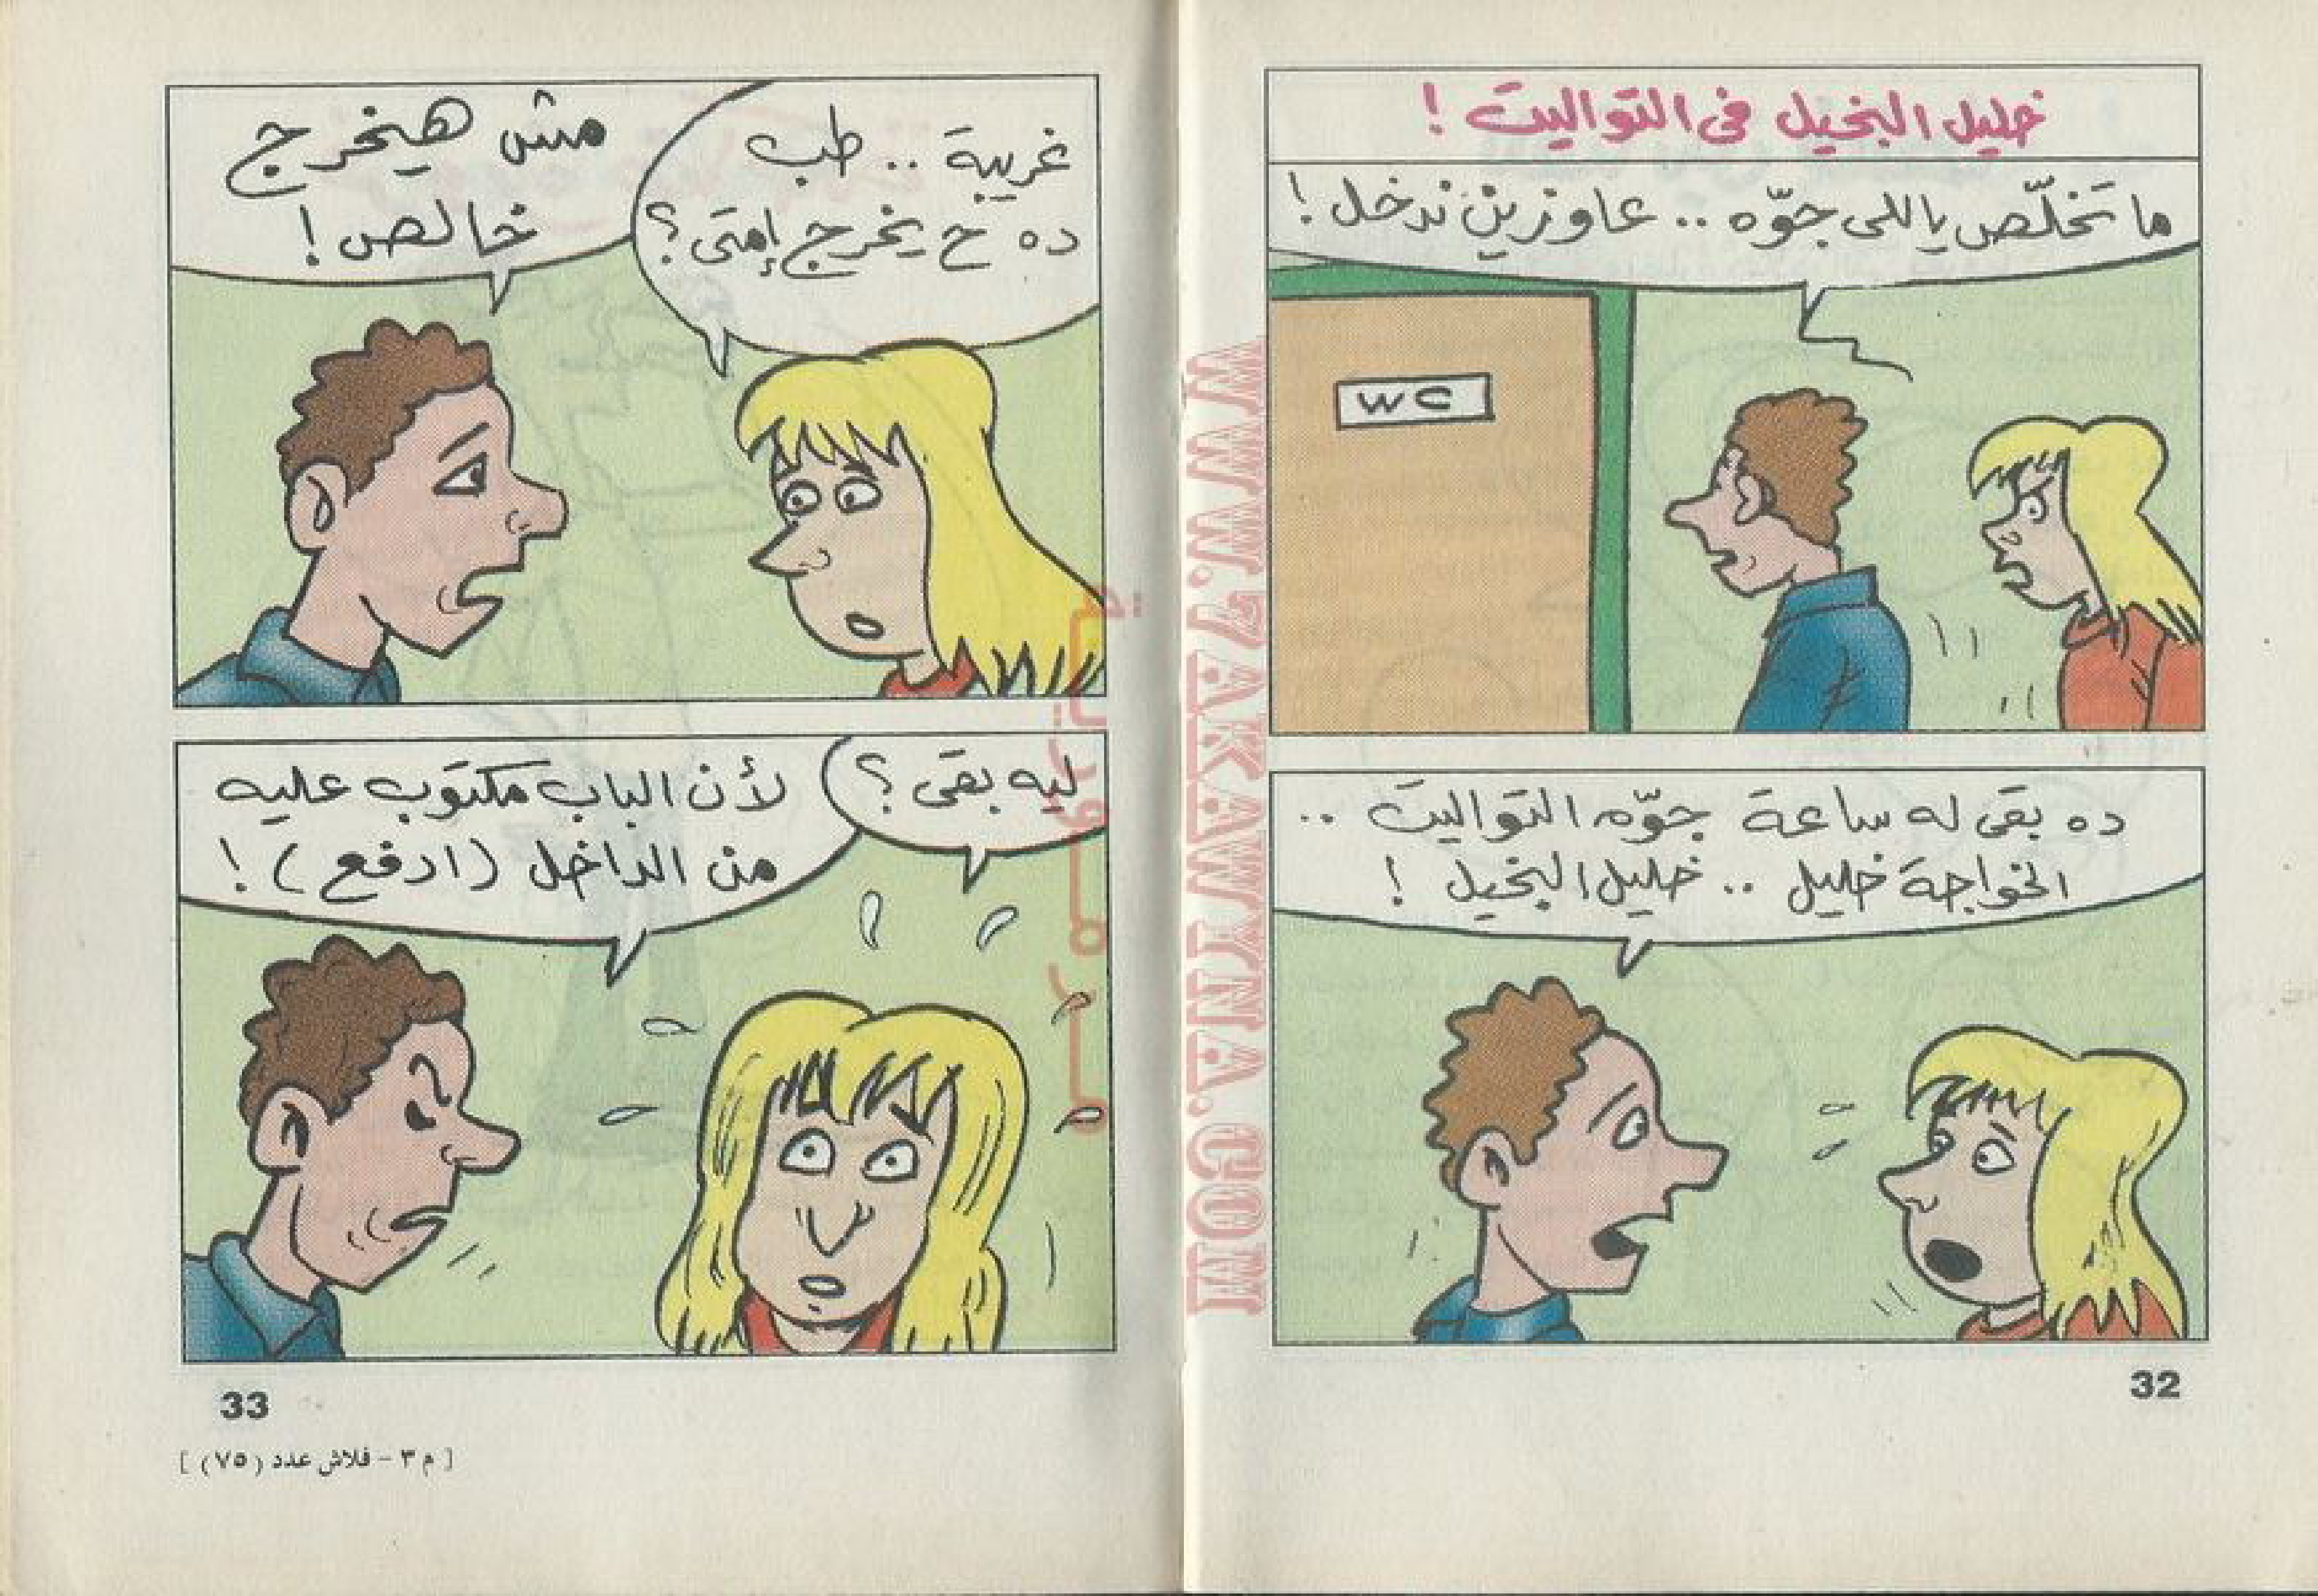 خليل البخيل فى التواليت !
ما تخلّص ياللى جوّه .. عاوزين ندخل !
WC
ده بقى له ساعة جوّه التواليت ..
الخواجة خليل .. خليل البخيل !
32
غريبة .. طب
ده ح يخرج إمتى ؟
مش هيخرج
خالص !
ليه بقى ؟
لأن الباب مكتوب عليه
من الداخل ( ادفع ) !
33
[ م ٣ - فلاش عدد ( ٧٥ ) ]
WWW.7AKAWYNA.COM